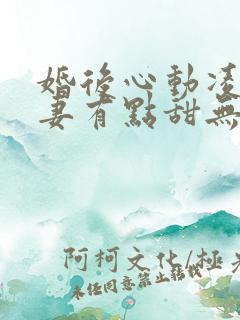 婚後心動凌
妻有點甜無
阿柯文化/極光
未經同意禁止轉載